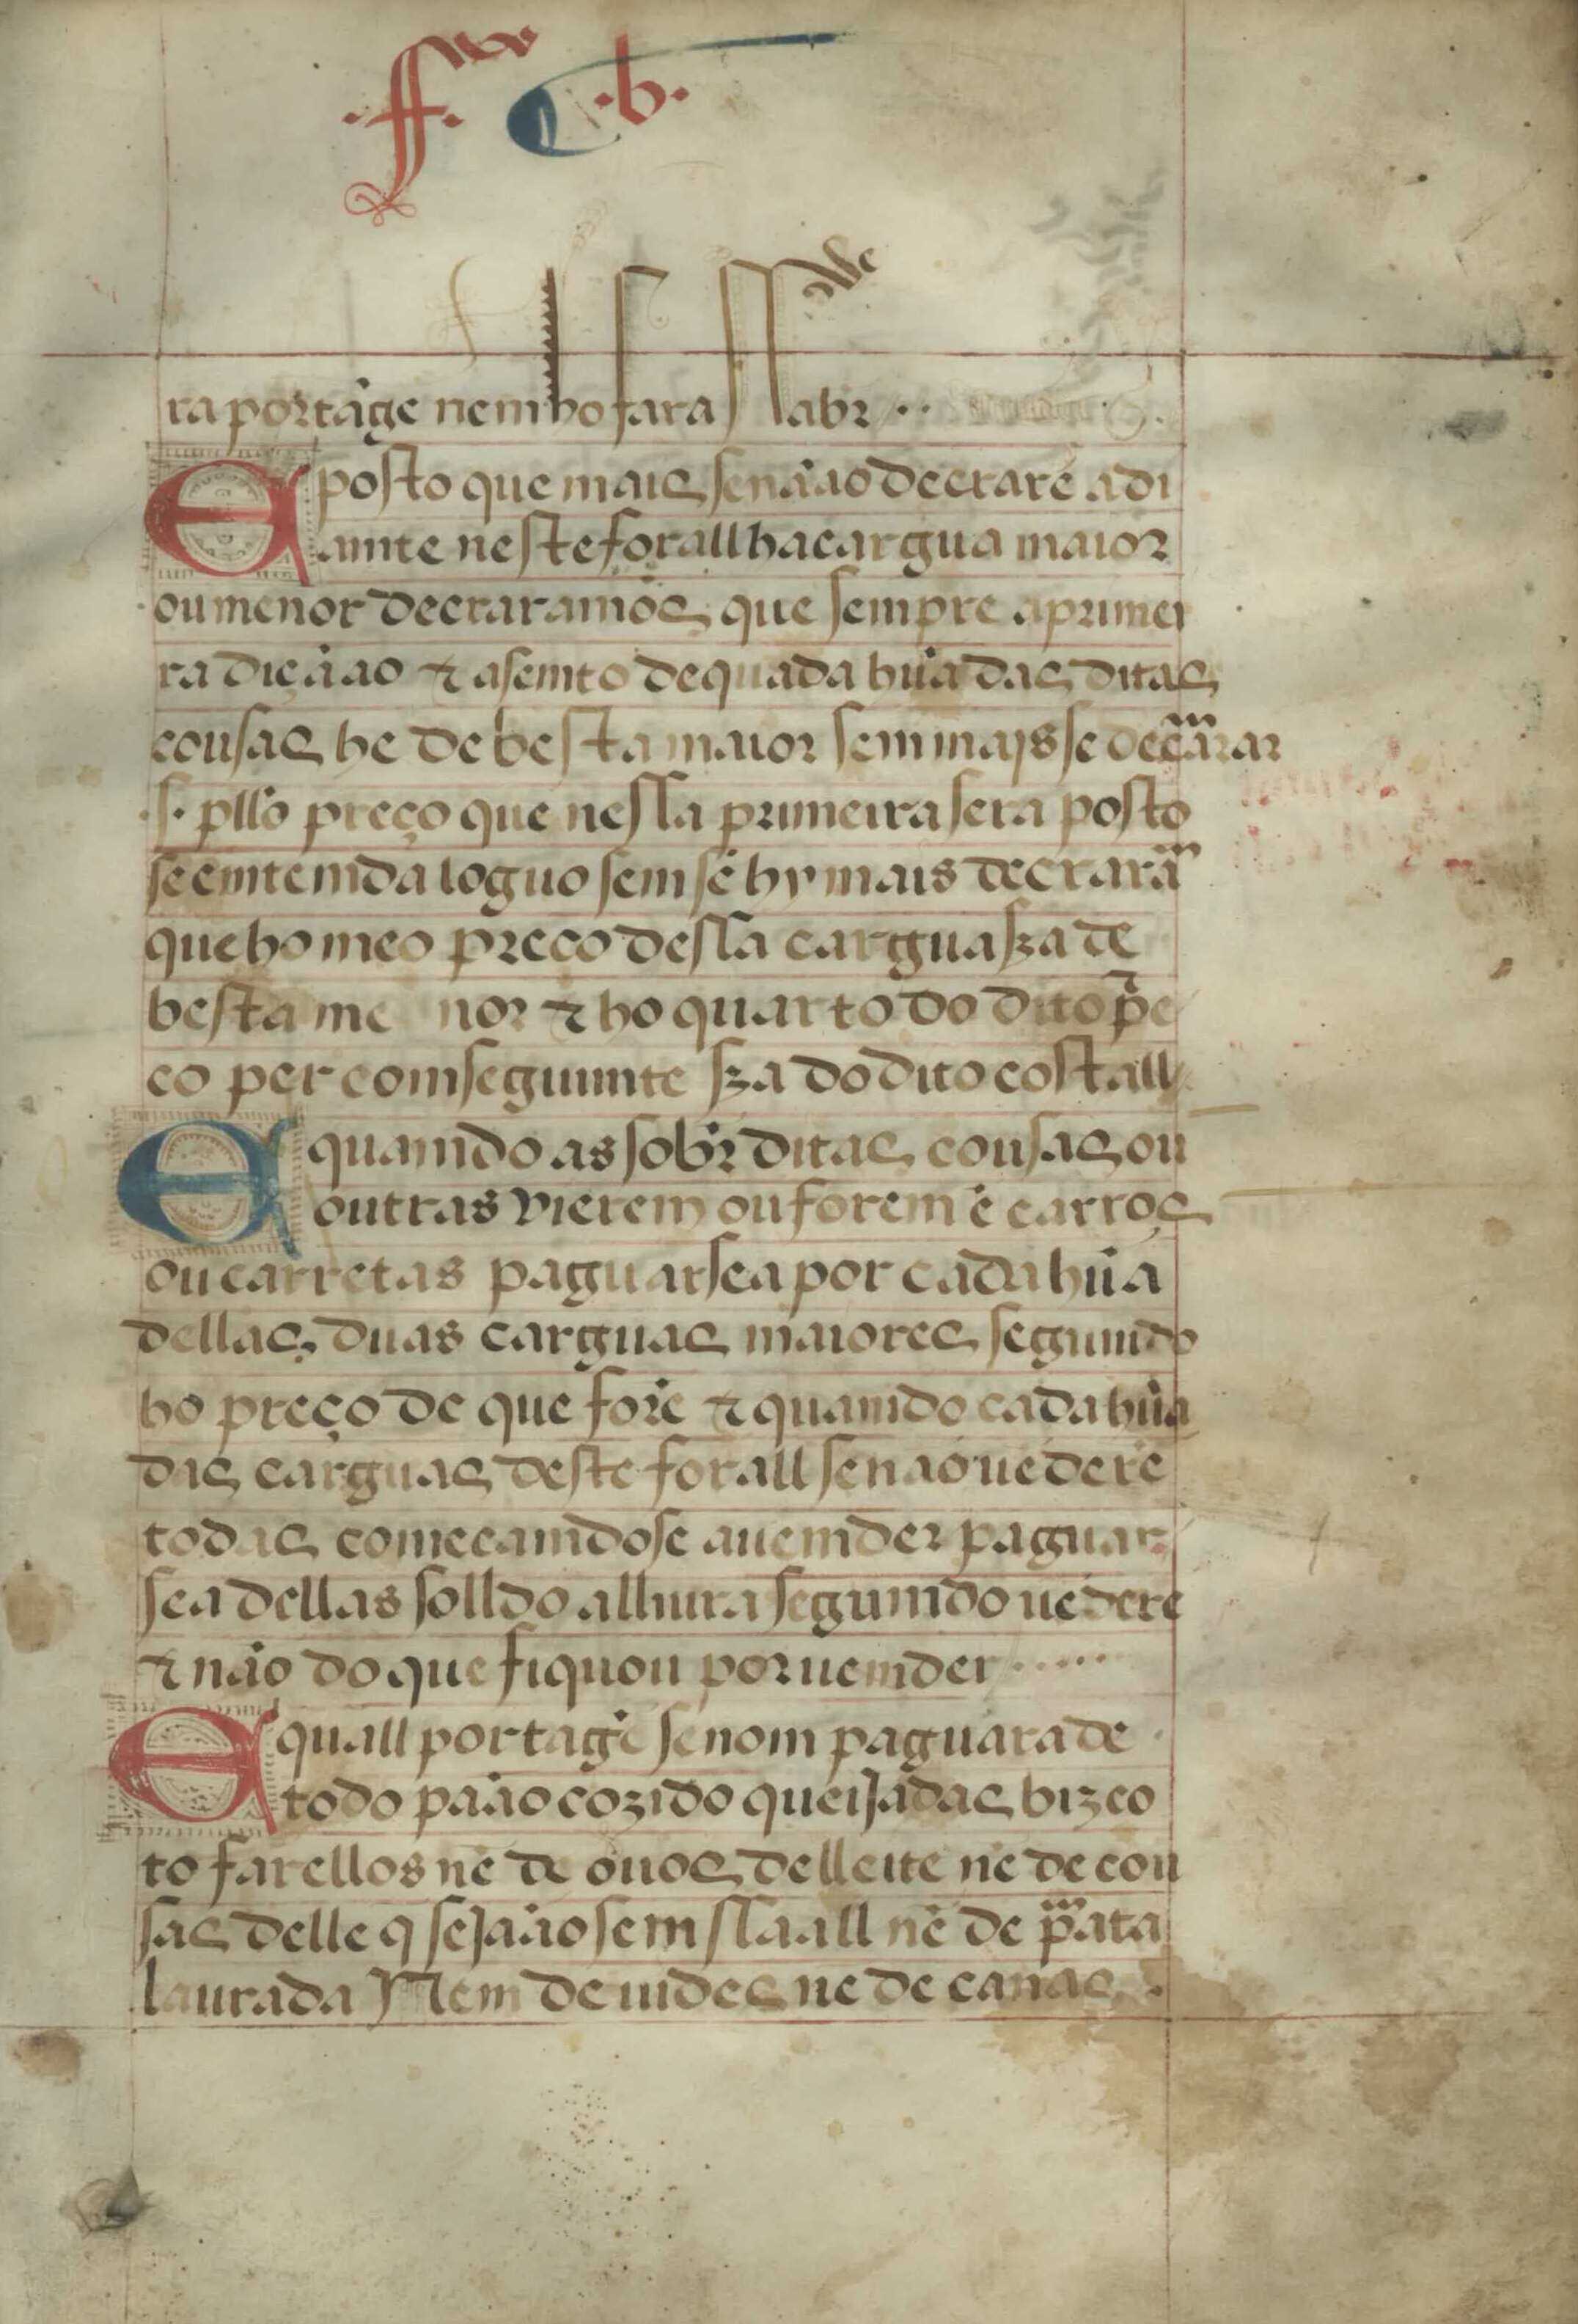 .f. ¶ .b.
ra portãge nem ho fara Sabr ..
E posto que mais se nãao decrarẽ adi
amte neste forall ha cargua maior
ou menor decraramos que sempre a primei
ra diçãao ⁊ asemto de quada hũa das ditas
cousas he de besta maior sem majs se decrarar
.s. pllo preço que nessa primeira sera posto
se emtemda loguo sem se hy mais decrarar
que ho meo preco dessa cargua sza de
besta me nor ⁊ ho quarto do dito pre
co per comseguimte sza do dito costall
E quamdo as sobr ditas cousas ou
outras vierem ou forem ẽ carros
ou carretas paguarsea por cada hũa
dellas duas carguas maiores segumdo
ho preço de que forẽ ⁊ quamdo cada hũa
das carguas deste forall se nao uẽderẽ
todas comecamdose a uemder paguar
sea dellas solldo a lliura segumdo uẽderẽ
⁊ não do que fiquou por uemder .....
E quall portagẽ se nom paguara de
todo pãao cozido queijadas bizco
to farellos nẽ de ouos de lleite nẽ de cou
sas delle q sejãao sem ssaall nẽ de prata
laurada Nem de uides nẽ de canas .